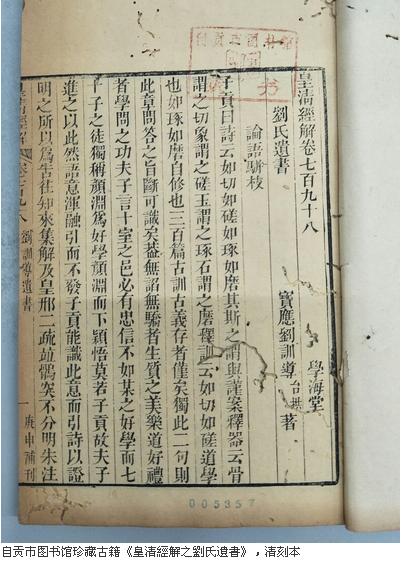 皇淸經解卷七百九十八
學海堂
劉氏遺書
寶應劉訓導台拱著
論語駢枝
子貢曰詩云如切如磋如琢如磨其斯之謂與謹案釋器云骨
謂之切象謂之磋玉謂之琢石謂之磨釋訓云如切如磋道學
也如琢如磨自修也三百篇古訓古義存者僅矣獨此二句則
此章問答之旨斷可識矣葢無諂無驕者生質之美樂道好禮
者學問之功夫子言十室之邑必有忠信不如某之好學而七
十子之徒獨稱顏淵爲好學顏淵而下穎悟莫若子貢故夫子
進之以此然語意渾融引而不發子貢能識此意而引詩以證
明之所以爲告往知來集解及皇邢二疏竝鶻突不分明朱注
皇淸經解
劉訓導遺書
一
庚申補刊
005357
自贡市图书馆珍藏古籍《皇清經解之劉氏遺書》，清刻本